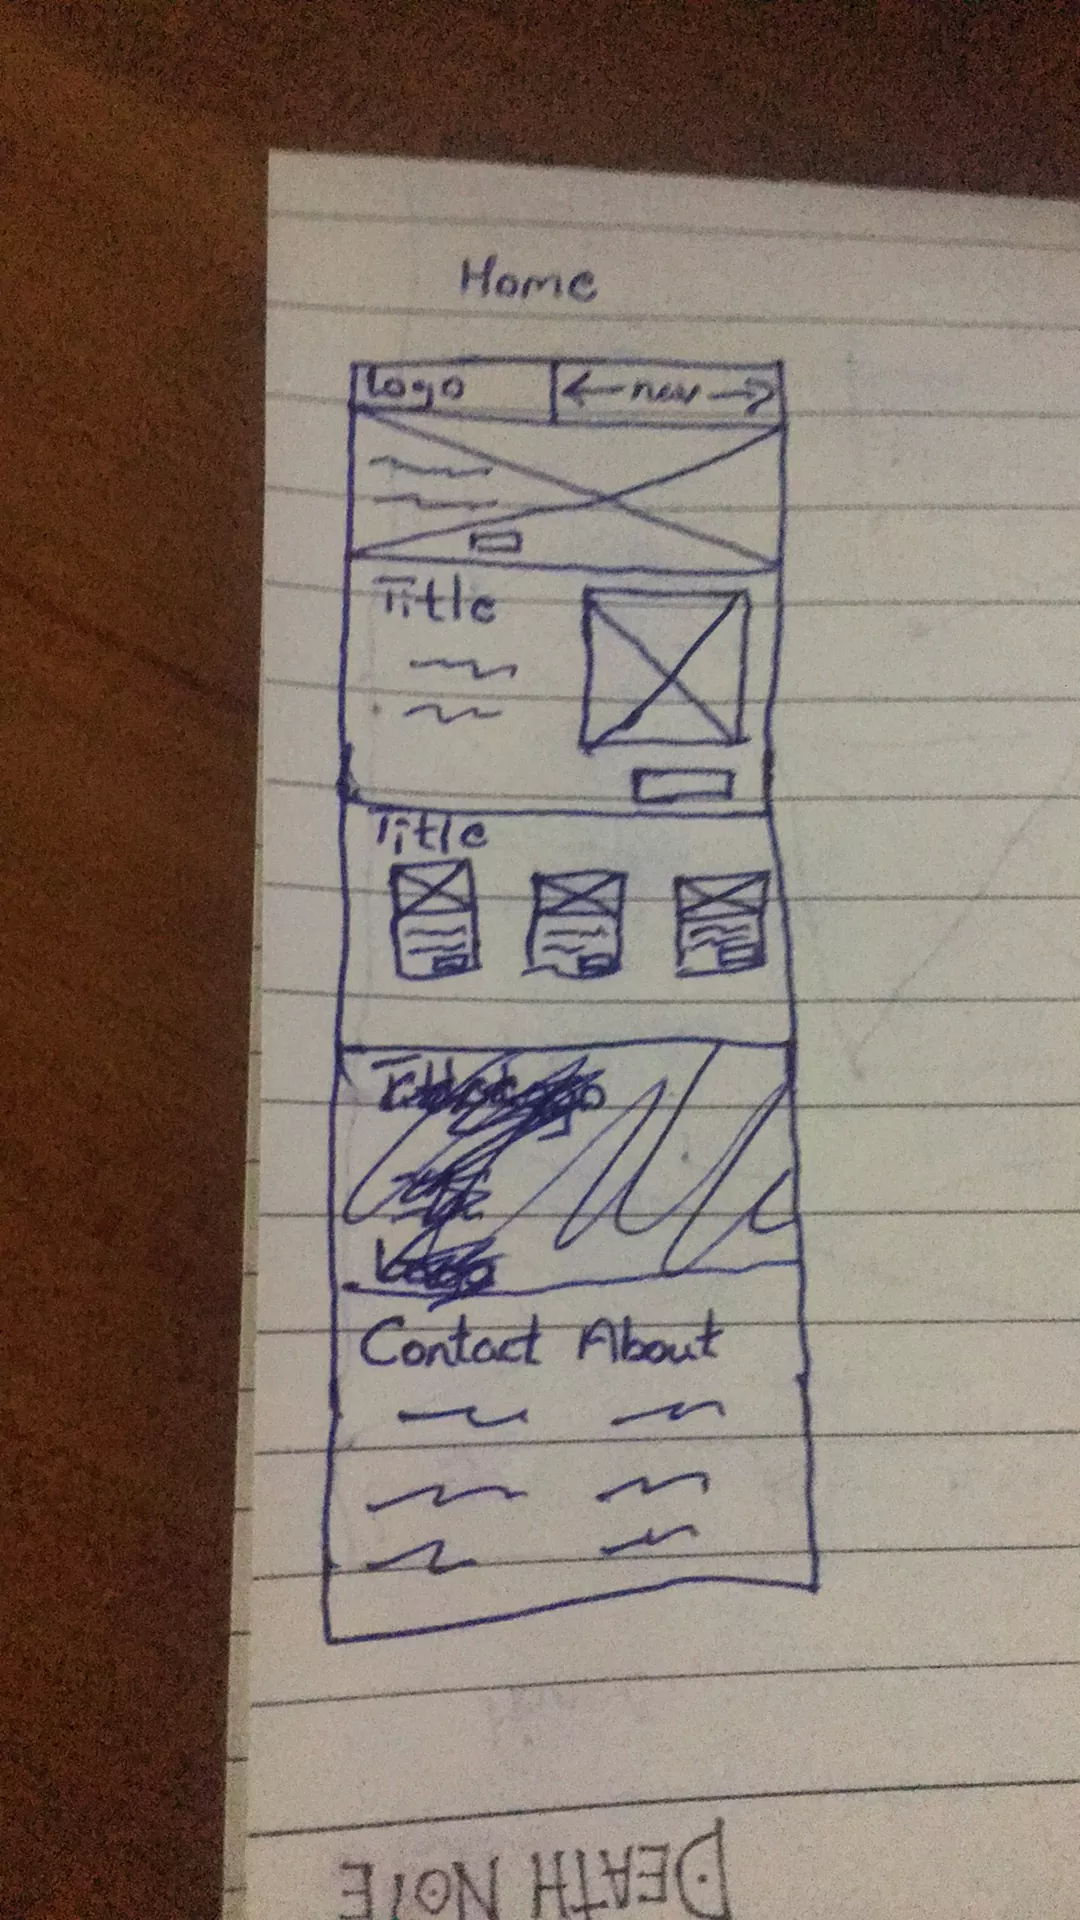 Home
Logo
← nav →
Title
Title
Contact About
DEATH NOTE